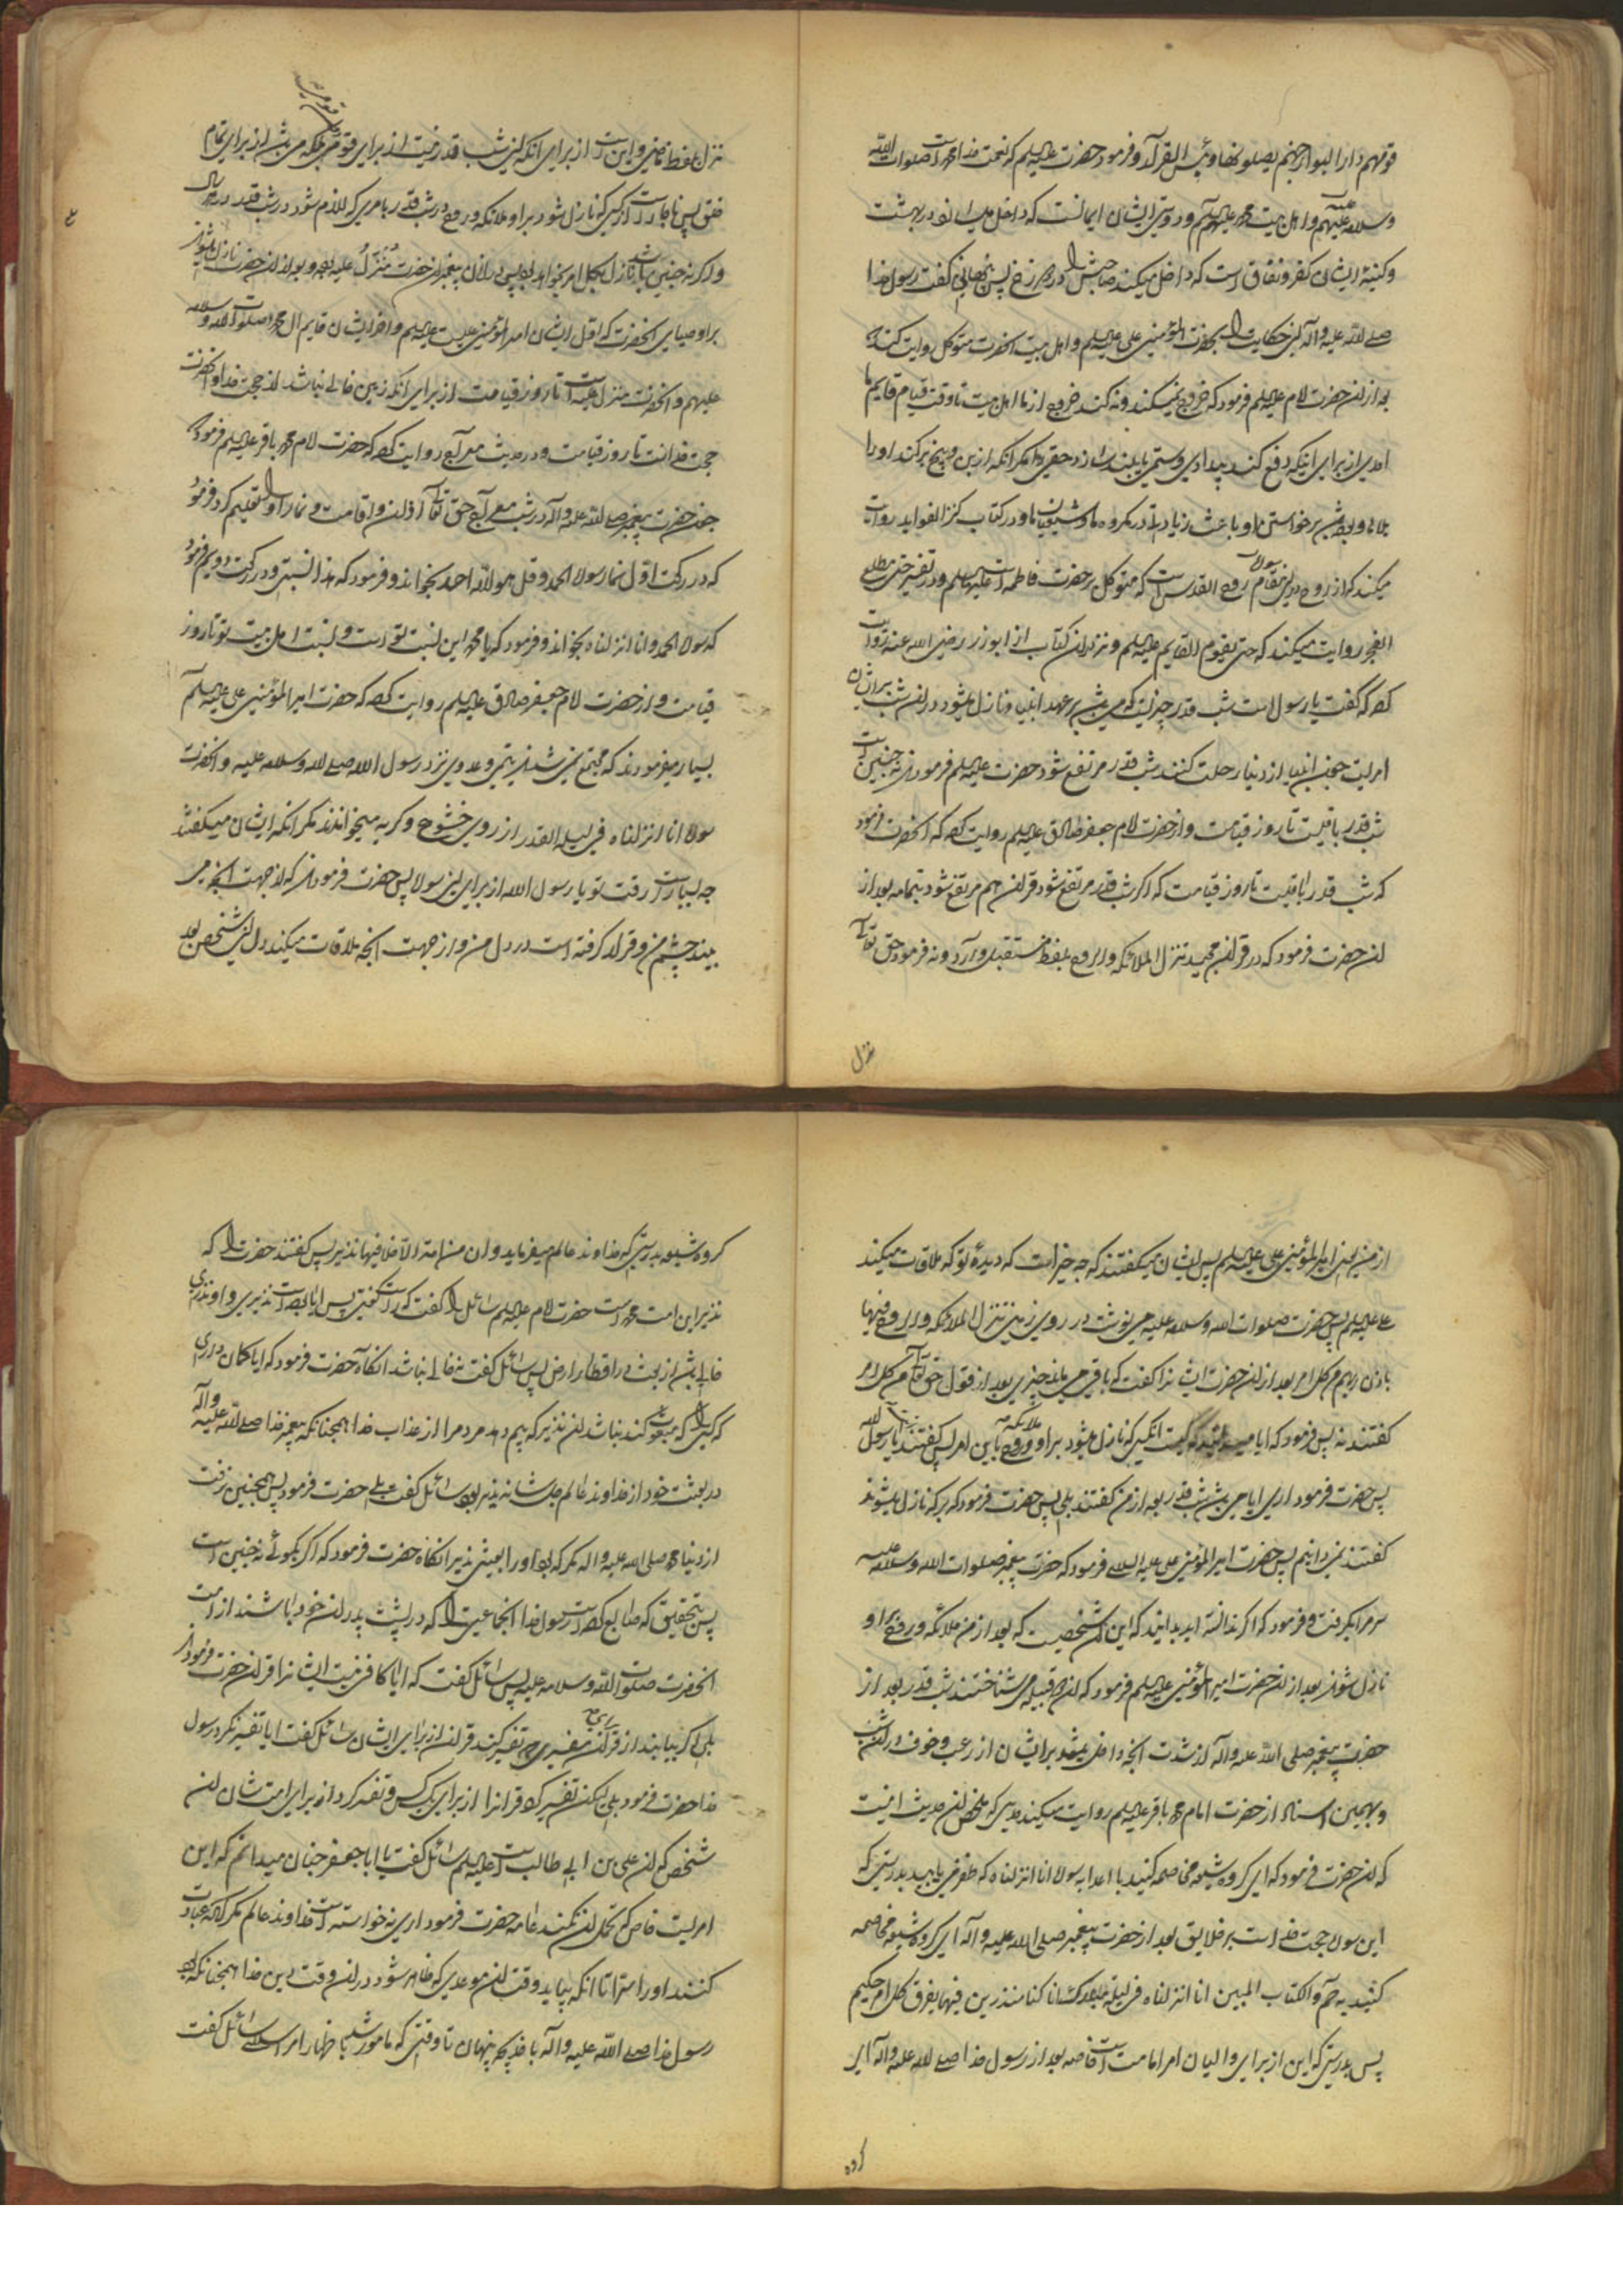 قومهم دار البوار جهنم یصلونها و بئس القرار و فرمود حضرت علیه السلم که نعمت خدا محمد است صلوات الله
وسلامه علیه و اهل بیت محمد علیهم السلم و دوستی ایشان ایمانست که داخل میسازد در بهشت
و کینه ایشان کفر و نفاق است که داخل میکند صاحبش را در دوزخ پس گفت رسول خدا
صلی الله علیه و آله این حکایت را بحضرت امیر المؤمنین علی علیه السلم و اهل بیت انحضرت متوکل روایت کند که
بعد از ان حضرت امام علیه السلم فرمود که خروج نمیکند و نه کند خروج از ما اهل بیت تا وقت قیام قایم ما
احدی از برای اینکه دفع کند بیدادی و ستمی یا بلند سازد حقی را مکر انکه از بن و بیخ برکند او را
بلا و بوده باشد برخواستن او باعث زیادتی در مکروه ما و شیعیان ما و در کتاب کنز الفواید روایت
میکند که از روح در این مقام روح القدس است که متوکل بر حضرت فاطمه است علیها السلم و در تفسیر حتی مطلع
الفجر روایت میکند که حتی یقوم القایم علیه السلم و نیز در ان کتاب از ابوذر رضی الله عنه روایت
کرده که گفت یا رسول الله شب قدر چیزیست که می باشد بر عهد انبیا و نازل میشود در ان شب بر ایشان
امر پس چون انبیا از دنیا رحلت کنند شب قدر مرتفع شود حضرت علیه السلم فرمودند نه چنین است
شب قدر باقیست تا روز قیامت و از حضرت امام جعفر صادق علیه السلم روایت کرده که انحضرت فرمود
که شب قدر باقیست تا روز قیامت که اکر شب قدر مرتفع شود قران هم مرتفع شود بتمامه بعد از
ان حضرت فرمود که در قران مجید تنزل الملائکه و الروح بلفظ مستقبل وارد و نه فرمود حق تعالی
تنزل
نزل بلفظ ماضی و این است از برای انکه این شب قدر نیست از برای قومی بلکه می باشد از برای تمام
خلق پس ناچار است از کسی که نازل شود بر او ملائکه و روح در شب قدر با امری که لازم شود در شب قدر در هر سال
و اکر نه چنین باشد نازل بکل امر نخواهد بود پس در زمان پیغمبر انحضرت منزل علیه بود و بعد از ان حضرت نازل میشوند
بر اوصیای انحضرت که اول ایشان امیر المؤمنین علیست علیه السلم و آخر ایشان قایم ال محمد صلوات الله وسلامه
علیهم و انحضرت منزل علیه است تا روز قیامت از برای انکه زمین خالی نباشد از حجت خدا و انحضرت
حجت خداست تا روز قیامت و در حدیث معراج روایت کرده که حضرت امام محمد باقر علیه السلم فرمود که
چون حضرت پیغمبر صلی الله علیه و آله در شب معراج حق تعالی اذان و اقامت و نماز او را تعلیم کرد فرمود
که در رکعت اول نماز سوره الحمد و قل هو الله احد بخواند و فرمود که هذا نسبتی و در رکعت دویم فرمود
که سوره الحمد و انا انزلناه بخواند و فرمود که یا محمد این نسبت تو است و نسبت اهل بیت تو تا روز
قیامت و از حضرت امام جعفر صادق علیه السلم روایت کرده که حضرت امیر المؤمنین علی علیه السلم
بسیار میفرمودند که مجتمع نمی شدند تیمی و عدوی نزد رسول الله صلی الله وسلامه علیه و انحضرت
سوره انا انزلناه فی لیله القدر از روی خشوع و کریه میخواندند مکر انکه ایشان میکفتند
چه بسیار است رقت تو یا رسول الله از برای این سوره پس حضرت فرمودند که از جهت انچه می
بیند چشم من و قرار کرفته است در دل من و از جهت انچه ملاقات میکند دل این شخص بعد
از من یعنی امیر المؤمنین علی علیه السلم پس ایشان میکفتند که چه چیز است که دیده تو که ملاقات میکند
علی علیه السلم پس حضرت صلوات الله وسلامه علیه می نوشت در روی زمین تنزل الملائکه و الروح فیها
باذن ربهم من کل امر بعد از ان حضرت ایشانرا کفت که باقی می ماند چیزی بعد از قول حق تعالی من کل امر
کفتند نه پس فرمود که ایا میدانید که کیست انکسی که نازل میشود بر او ملائکه و روح باین امر پس کفتند یا رسول الله
پس حضرت فرمود اری ایا می باشد شب قدر بعد از من کفتند بلی پس حضرت فرمود که بر که نازل میشوند
کفتند نمیدانیم پس حضرت امیر المؤمنین علی علیه السلام فرمود که حضرت پیغمبر صلوات الله وسلامه علیه
سر مرا بکرفت و فرمود که اکر ندانسته اید بدانید که این ان شخصیست که بعد از من ملائکه و روح بر او
نازل شوند بعد از ان حضرت امیر المؤمنین علیه السلم فرمود که ان دو قبیله می شناختند شب قدر بعد از
حضرت پیغمبر صلی الله علیه و آله از شدت انچه داخل میشد بر ایشان از رعب و خوف در ان شب
و بهمین اسناد از حضرت امام محمد باقر علیه السلم روایت میکند حدیثی که ملخص ان حدیث اینست
که ان حضرت فرمود که ای کروه شیعه مخاصمه کنید با اعدا بسوره انا انزلناه که ظفر می یابید بدرستی که
این سوره حجت خداست بر خلایق بعد از حضرت پیغمبر صلی الله علیه و آله ای کروه شیعه مخاصمه
کنید به حم و الکتاب المبین انا انزلناه فی لیلة مبارکة انا کنا منذرین فیها یفرق کل امر حکیم
پس بدرستی که این از برای والیان امر امامت است خاصه بعد از رسول خدا صلی الله علیه و آله ای
کروه
کروه شیعه بدرستی که خداوند عالم میفرماید و ان من امة الا خلا فیها نذیر پس کفتند حضرت را که
نذیر این امت محمد است حضرت امام علیه السلم سائل را کفت که راست کفتی پس ایا بوده است نذیری و او نذیری
خالی باشد از بعثت در اقطار ارض پس سائل کفت نه خالی نباشد انکاه حضرت فرمود که ایا کمان داری
که کسی را که مبعوث کند نباشد ان نذیر که بیم دهد مردم را از عذاب خدا همچنانکه پیغمبر خدا صلی الله علیه و آله
در بعثت خود از خداوند عالم جل شانه نذیر بود سائل کفت بلی حضرت فرمود پس همچنین نرفت
از دنیا محمد صلی الله علیه و اله مکر که بود او را بعیثی نذیر انکاه حضرت فرمود که اکر بکوئے نه چنین است
پس بتحقیق که ضایع کرده است رسول خدا انجماعتی را که در پشت پدران خود باشند از امت
انحضرت صلوات الله وسلامه علیه پس سائل کفت که ایا کافی نیست ایشانرا قران حضرت فرمودند
بلی اکر بیابند از برای قران مفسری که تفسیر کند قران از برای ایشان سائل کفت ایا تفسیر نکرد رسول
خدا حضرت فرمود بلی لیکن تفسیر کرد قرانرا از برای یک کس و تفسیر کرد از برای امت شان ان
شخص که ان علی بن ابی طالب است علیه السلم سائل کفت یا ابا جعفر چنان میدانم که این
امریست خاص که تحمل ان نمیکند عامه حضرت فرمود اری نه خواسته است خداوند عالم مکر انکه عبادت
کنند او را سرا تا انکه بیاید وقت ان موعدی که ظاهر شود در ان وقت دین خدا همچنانکه بود
رسول خدا صلی الله علیه و آله با خدیجه پنهان تا وقتی که مامور شد با ظهار امر اسلام سائل کفت